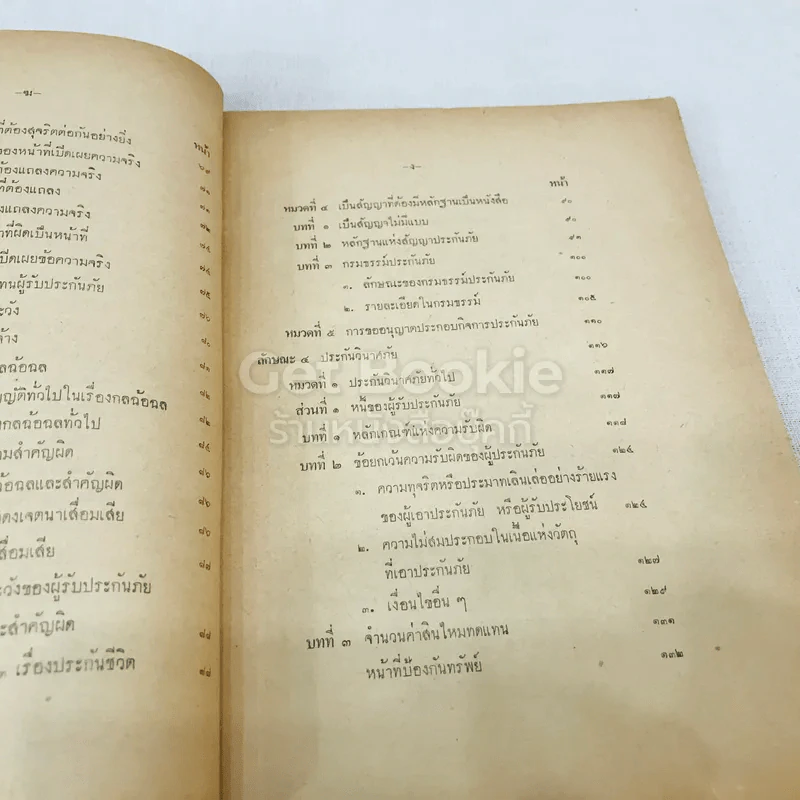 -ฆ-
ที่ต้องสุจริตต่อกันอย่างยิ่ง
หน้า
ของหน้าที่เปิดเผยความจริง ๖๓
ต้องแถลงความจริง ๗๑
ที่ต้องแถลง ๗๑
แถลงความจริง ๗๒
ที่ผิดเป็นหน้าที่ ๗๔
เปิดเผยข้อความจริง ๗๔
แทนผู้รับประกันภัย ๗๕
ะวัง ๗๖
ล้าง ๘๐
ลฉ้อฉล ๘๑
บัญญัติทั่วไปในเรื่องกลฉ้อฉล ๘๒
งกลฉ้อฉลทั่วไป ๘๒
ามสำคัญผิด ๘๔
ฉ้อฉลและสำคัญผิด ๘๖
ดงเจตนาเสื่อมเสีย ๘๖
สื่อมเสีย ๘๗
ะวังของผู้รับประกันภัย
ะสำคัญผิด ๘๘
เรื่องประกันชีวิต ๘๘
-ง-
หน้า
หมวดที่ ๔ เป็นสัญญาที่ต้องมีหลักฐานเป็นหนังสือ ๙๐
บทที่ ๑ เป็นสัญญาไม่มีแบบ ๙๐
บทที่ ๒ หลักฐานแห่งสัญญาประกันภัย ๙๑
บทที่ ๓ กรมธรรม์ประกันภัย ๑๐๐
๑. ลักษณะของกรมธรรม์ประกันภัย ๑๐๐
๒. รายละเอียดในกรมธรรม์ ๑๐๕
หมวดที่ ๕ การขออนุญาตประกอบกิจการประกันภัย ๑๑๐
ลักษณะ ๔ ประกันวินาศภัย ๑๑๖
หมวดที่ ๑ ประกันวินาศภัยทั่วไป ๑๑๗
ส่วนที่ ๑ หนี้ของผู้รับประกันภัย
บทที่ ๑ หลักเกณฑ์แห่งความรับผิด ๑๑๗
บทที่ ๒ ข้อยกเว้นความรับผิดของผู้ประกันภัย ๑๒๔
๑. ความทุจริตหรือประมาทเลินเล่ออย่างร้ายแรง
ของผู้เอาประกันภัย หรือผู้รับประโยชน์ ๑๒๔
๒. ความไม่สมประกอบในเนื้อแห่งวัตถุ
ที่เอาประกันภัย ๑๒๗
๓. เงื่อนไขอื่น ๆ ๑๒๙
บทที่ ๓ จำนวนค่าสินไหมทดแทน ๑๓๑
หน้าที่ป้องกันทรัพย์ ๑๓๒
Get Bookie
ร้านหนังสือบุ๊กกี้